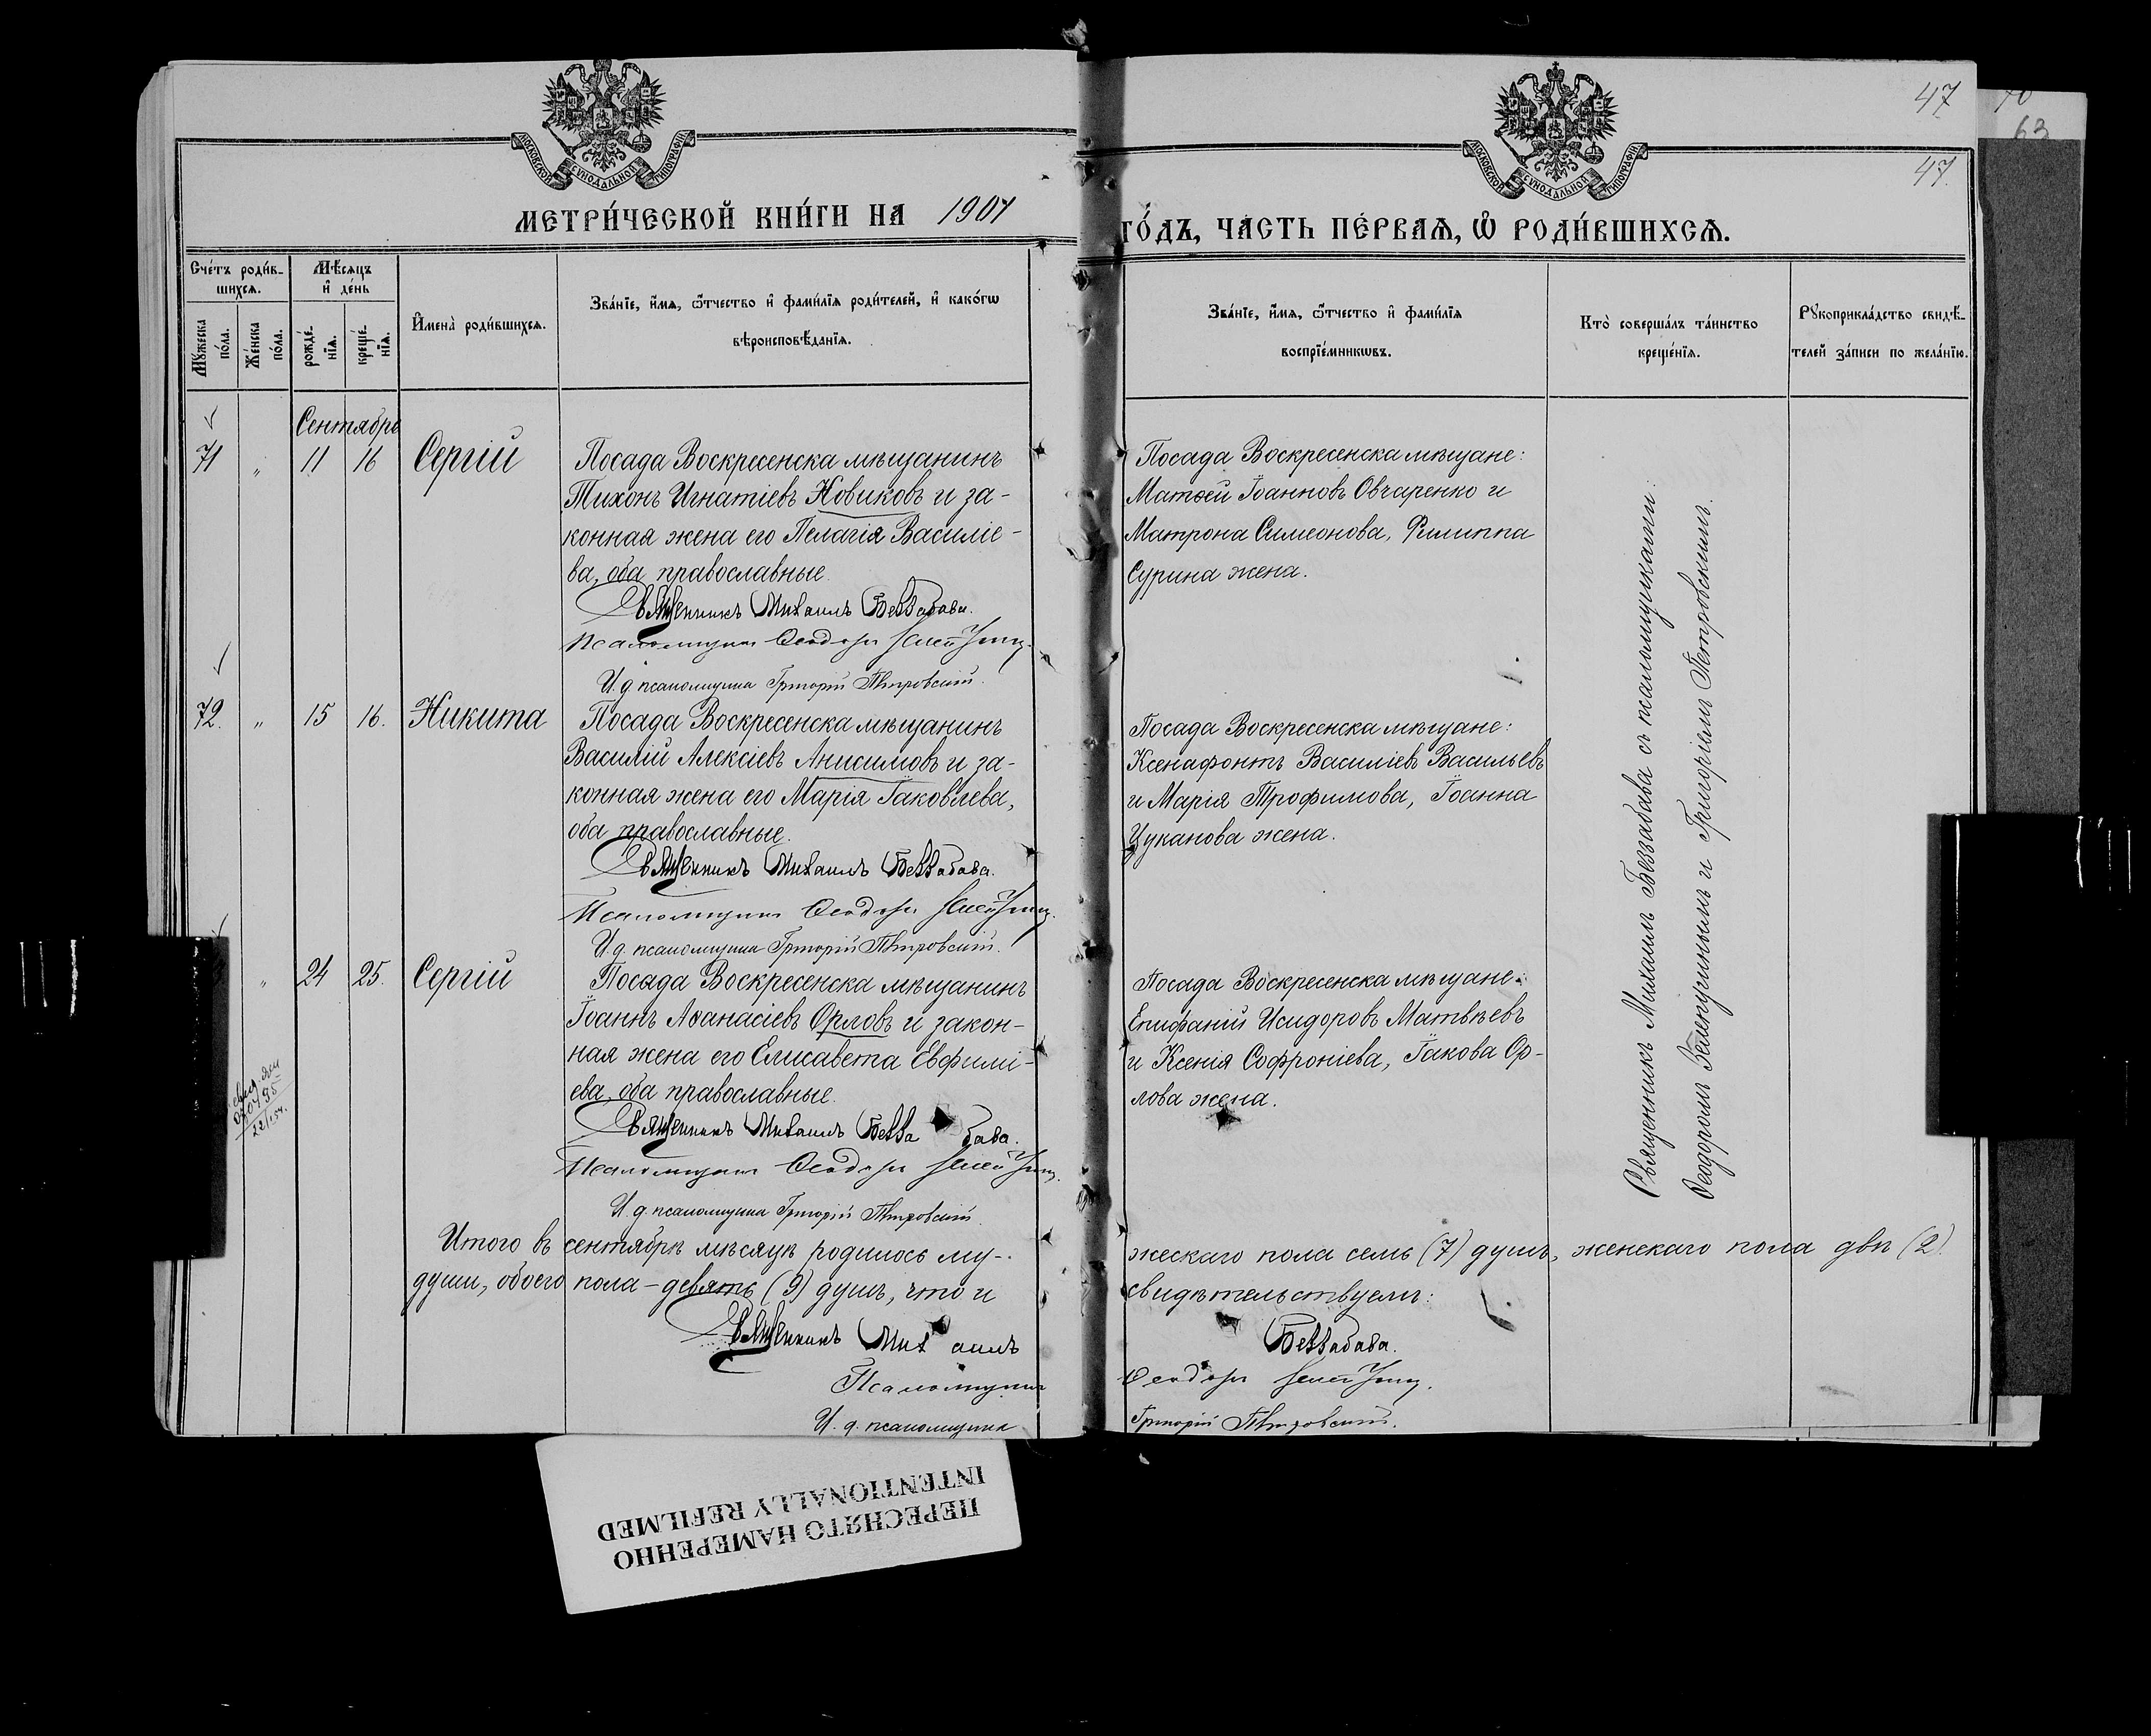 МОСКОВСКОЙ СѴНОДАЛЬНОЙ ТИПОГРАФІИ
МОСКОВСКОЙ СѴНОДАЛЬНОЙ ТИПОГРАФІИ
47
63
47.
МЕТРИ́ЧЕСКОЙ КНИ́ГИ НА 1907
ГО́ДЪ, ЧА́СТЬ ПЕ́РВАѦ, Ѡ҆ РОДИ́ВШИХСѦ.
Сче́тъ роди́в-
шихсѧ.
Мѣ́сѧцъ
и҆ де́нь
Мꙋ́жеска
по́ла.
Же́нска
по́ла.
рожде́-
нїѧ.
креще́-
нїѧ.
И҆мена̀ роди́вшихсѧ.
Зва́нїе, и҆́мѧ, ѻ҆́тчество и҆ фами́лїѧ роди́телей, и҆ како́гѡ
вѣроисповѣ́данїѧ.
Зва́нїе, и҆́мѧ, ѻ҆́тчество и҆ фами́лїѧ
воспрїе́мникѡвъ.
Кто̀ соверша́лъ та́инство
креще́нїѧ.
Рꙋкоприкла́дство свидѣ́-
телей за́писи по жела́нїю.
Сентябрь
71 „ 11 16 Сергій
Посада Воскресенска мѣщанинъ
Тихонъ Игнатіевъ Новиковъ и за-
конная жена его Пелагія Василіе-
ва, оба православные.
Священникъ Михаилъ Беззабава.
Псаломщикъ Ѳеодоръ
И. д. псаломщика Григорій Петровскій.
Посада Воскресенска мѣщане:
Матѳей Іоанновъ Овчаренко и
Матрона Симеонова, Филиппа
Сурина жена.
72. „ 15 16. Никита
Посада Воскресенска мѣщанинъ
Василій Алексіевъ Анисимовъ и за-
конная жена его Марія Іаковлева,
оба православные.
Священникъ Михаилъ Беззабава.
Псаломщикъ Ѳеодоръ
И. д. псаломщика Григорій Петровскій.
Посада Воскресенска мѣщане:
Ксенафонтъ Василіевъ Васильевъ
и Марія Трофимова, Іоанна
Цуканова жена.
„ 24 25. Сергій
Посада Воскресенска мѣщанинъ
Іоаннъ Аѳанасіевъ Орловъ и закон-
ная жена его Елисавета Евфимі-
ева, оба православные.
Священникъ Михаилъ Беззабава.
Псаломщикъ Ѳеодоръ
И. д. псаломщика Григорій Петровскій.
Посада Воскресенска мѣщане:
Епифаній Исидоровъ Матвѣевъ
и Ксенія Софроніева, Іакова Ор-
лова жена.
Священникъ Михаилъ Беззабава съ псаломщиками:
Ѳеодоромъ и Григоріемъ Петровскимъ.
Итого въ сентябрѣ мѣсяцѣ родилось му-
жескаго пола семь (7) душъ, женскаго пола двѣ (2)
души, обоего пола - девять (9) душъ, что и
свидѣтельствуемъ:
Священникъ Михаилъ Беззабава.
Псаломщикъ Ѳеодоръ
И. д. псаломщика Григорій Петровскій.
ПЕРЕСНЯТО НАМЕРЕННО
INTENTIONALLY REFILMED